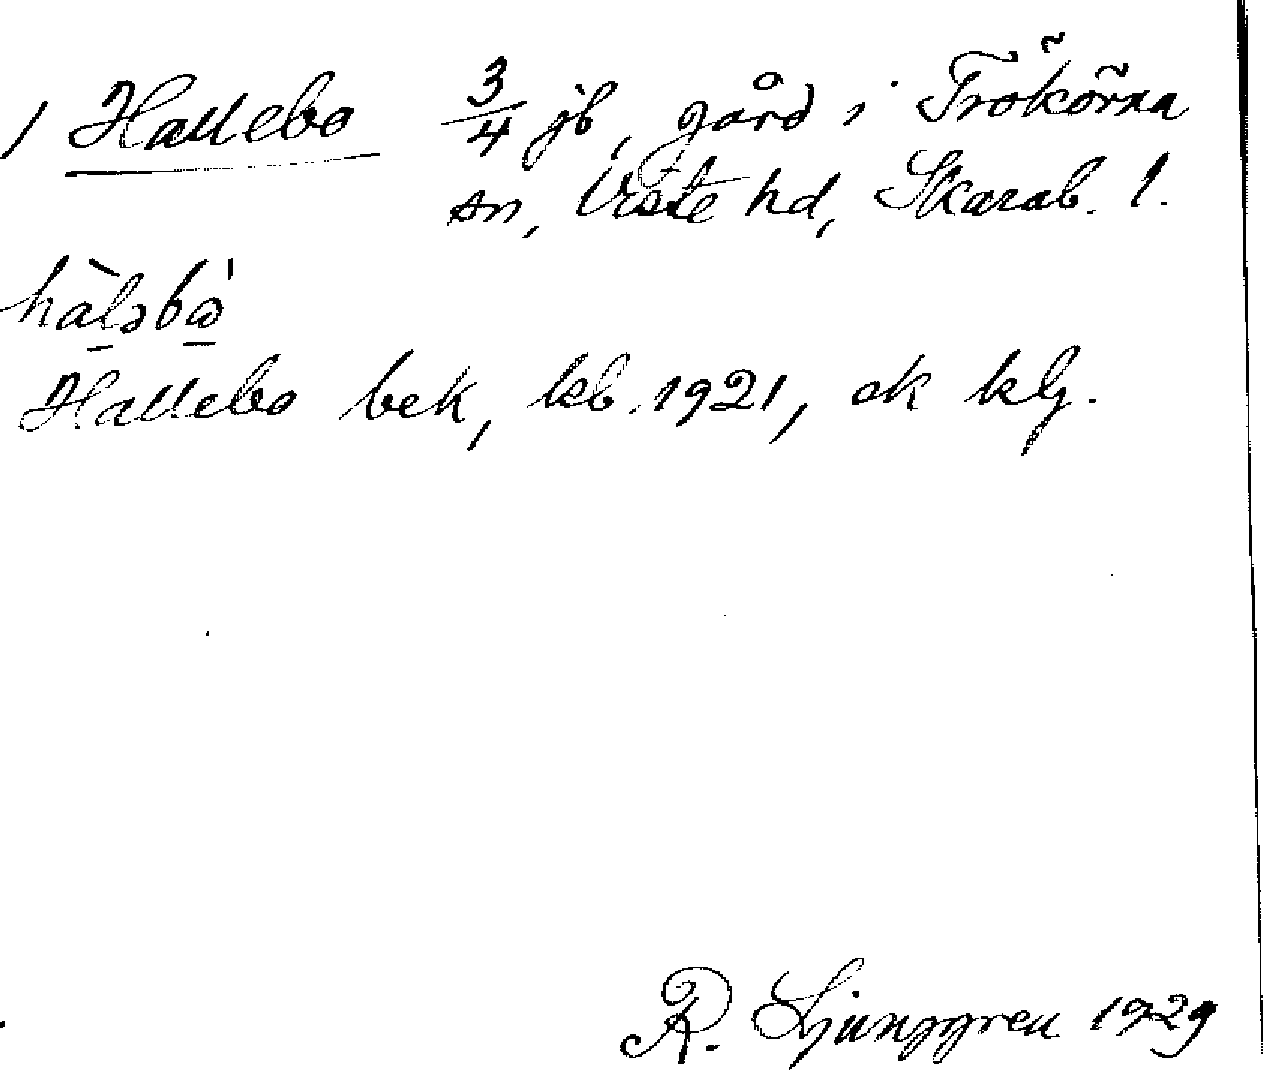 / Hallebo 3/4 jb, gård i Trökörna
sn, Viste hd, Skarab. l.
hàləbὼ
Hallebo bek, kb. 1921, ek klg.
R. Ljunggren 1929